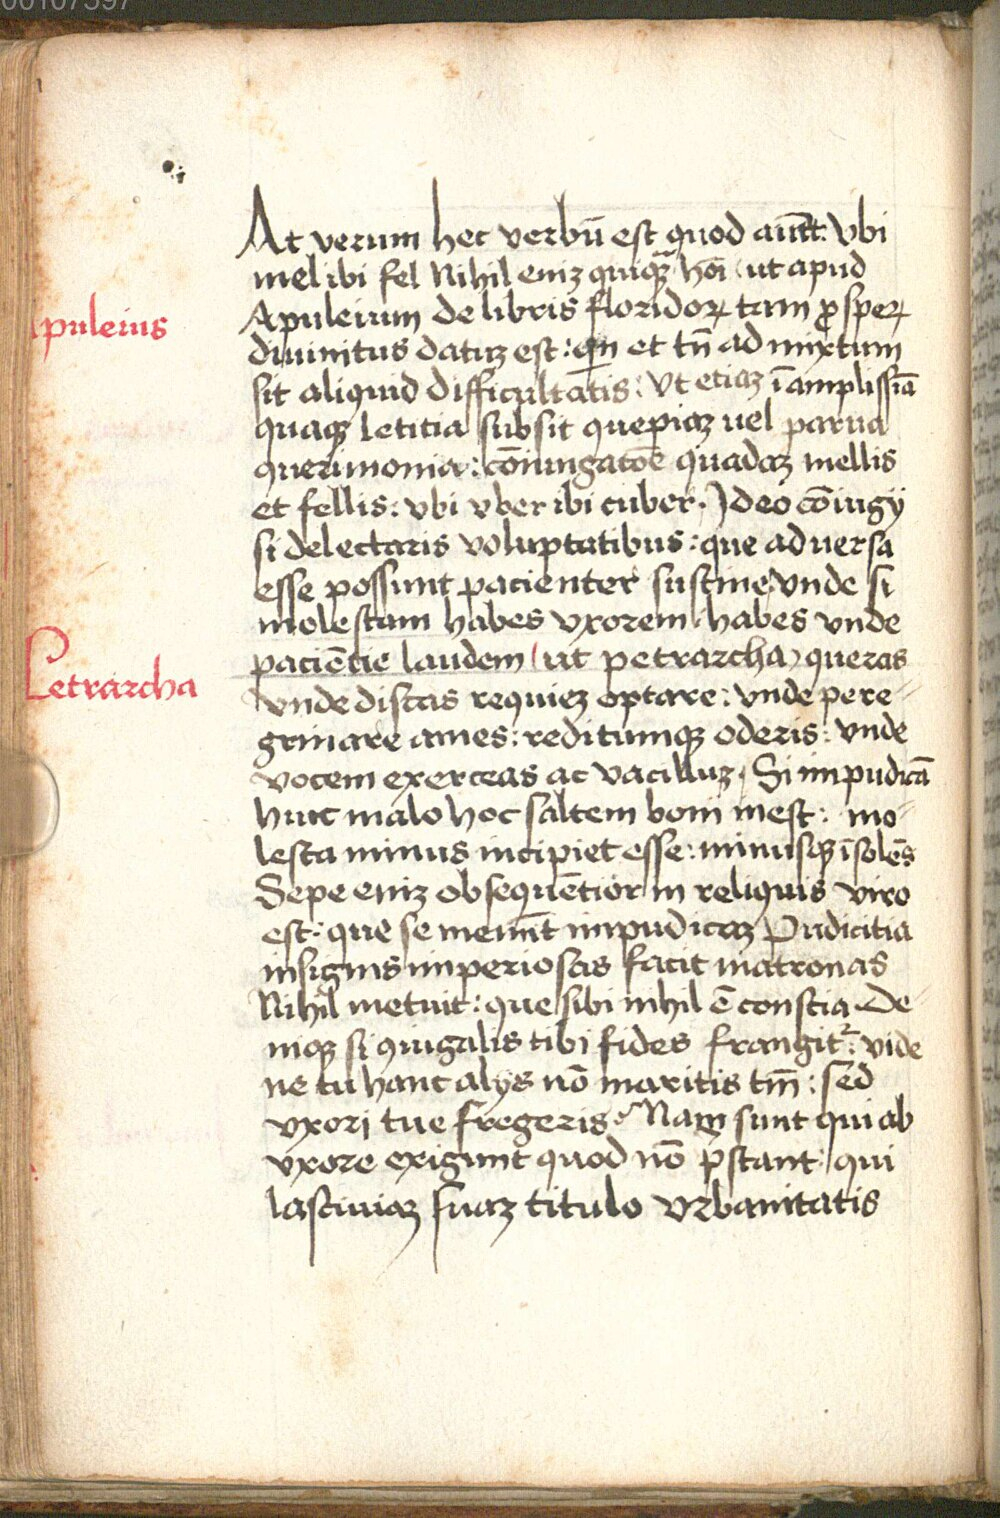 At verum hec verbū est quod aūnt: Vbi
mel ibi fel Nihil enīz quiq̄ꝫ hōi (ut apud
Apuleius
Apuleium de libris floridoꝝ tam ꝓspeꝝ
diuinitus datuꝫ est: qn̄ et tn̄ ad mixtum
sit aliquid difficultatis: Vt etiaꝫ ī amplissīa
quaqꝫ letitia subsit quepiaꝫ uel parua
querimonia: cōniungatōe quadaꝫ mellis
et fellis: vbi vber ibi tuber. Ideo cōiugij
si delectaris voluptatibus: que aduersa
esse possunt pacienter sustine vnde si
molestam habes vxorem habes vnde
Petrarcha
paciēcie laudem (ut petrarcha) queras
vnde discas requieꝫ optare: vnde pere-
grinare ames: reditumqꝫ oderis: vnde
vocem exerceas ac vacilluꝫ. Si impudicā
huic malo hoc saltem boni inest: mo-
lesta minus incipiet esse: minusqꝫ īsolēs
Sepe eniꝫ obsequētior in reliquis viro
est: que se memīt impudicaꝫ Pudicitia
insignis imperiosas facit matronas
Nihil metuit: que sibi nihil ē conscia. De-
niqꝫ si ꝯiugalis tibi fides frangit᷑: vide
ne tu hanc alijs nō maritis tm̄: sed
vxori tue fregeris? Nam sunt qui ab
vxore exigunt quod nō p̄stant: qui
lasciuiaꝫ suaꝫ titulo vrbanitatis